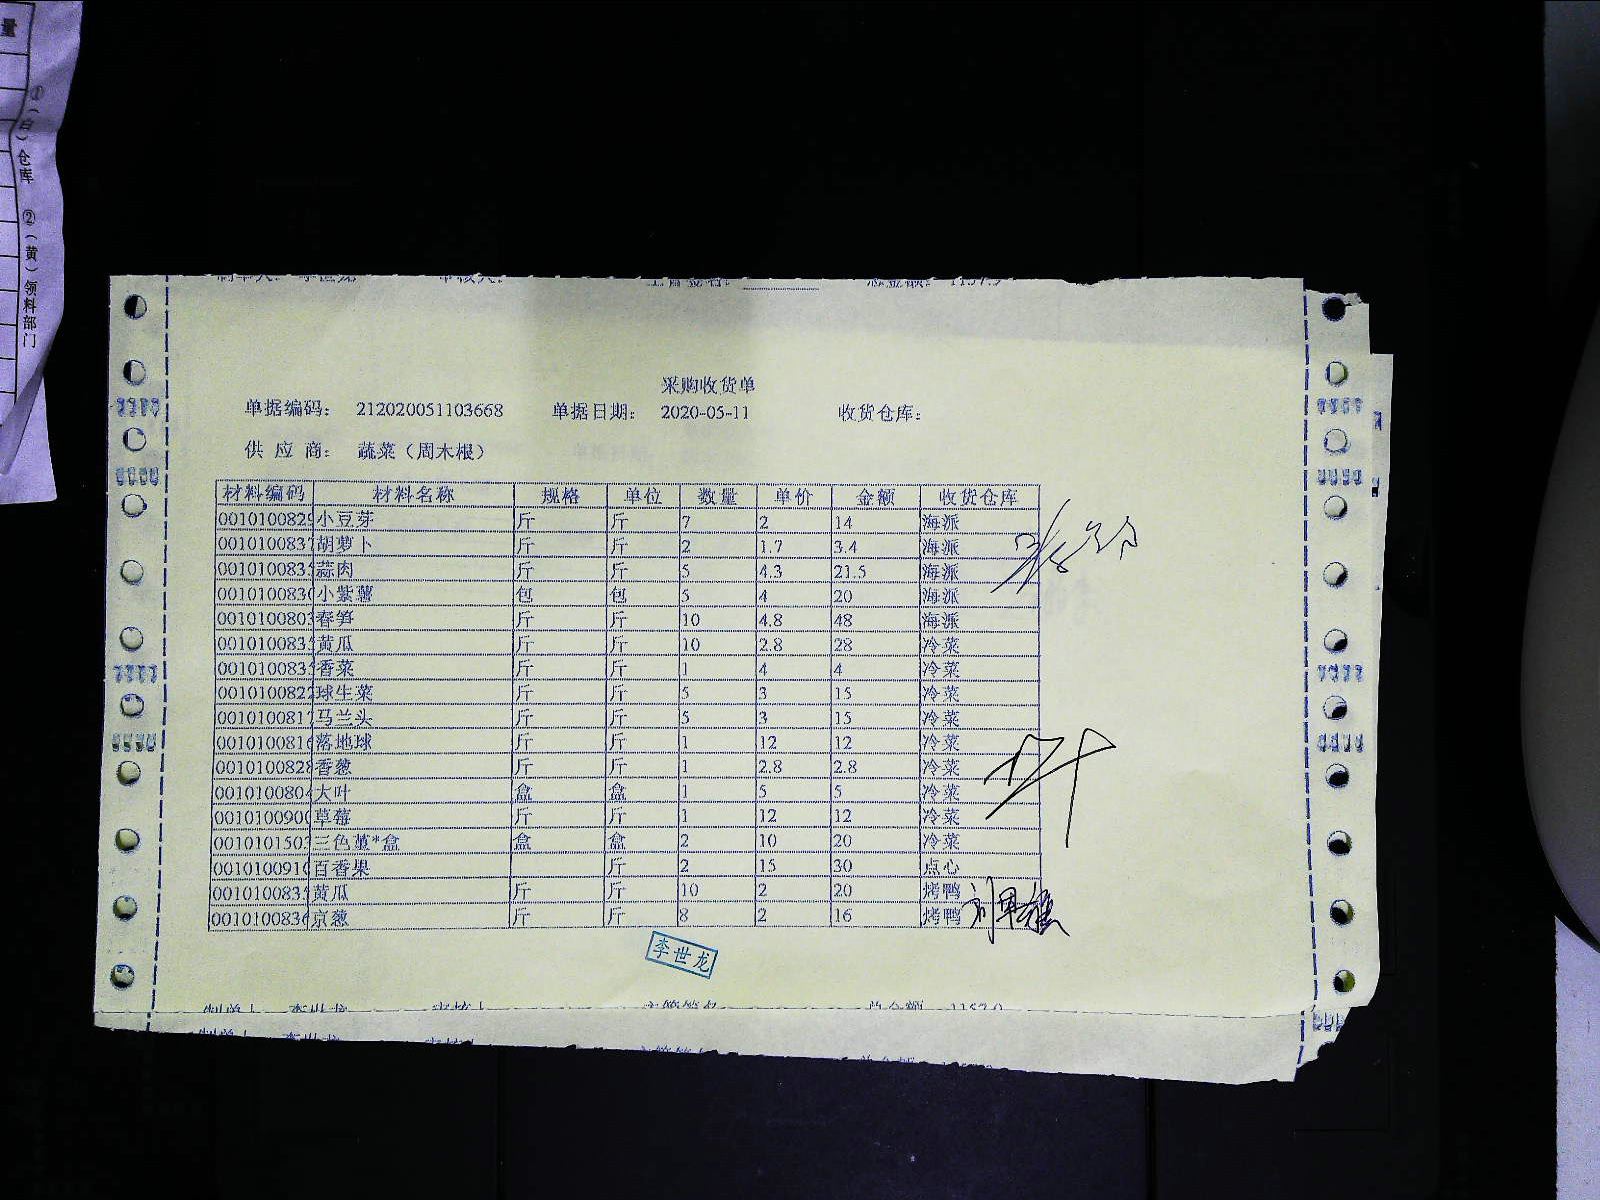 量
①（白）仓库 ②（黄）领料部门
采购收货单
单据编码： 212020051103668 单据日期： 2020-05-11 收货仓库：
供 应 商： 蔬菜（周木根）
材料编码 材料名称 规格 单位 数量 单价 金额 收货仓库
0010100829 小豆芽 斤 斤 7 2 14 海派
001010083 胡萝卜 斤 斤 2 1.7 3.4 海派
001010083 蒜肉 斤 斤 5 4.3 21.5 海派
001010083 小紫薯 包 包 5 4 20 海派
001010080 春笋 斤 斤 10 4.8 48 海派
001010083 黄瓜 斤 斤 10 2.8 28 冷菜
001010083 香菜 斤 斤 1 4 4 冷菜
001010082 球生菜 斤 斤 5 3 15 冷菜
001010081 马兰头 斤 斤 5 3 15 冷菜
001010081 落地球 斤 斤 1 12 12 冷菜
0010100828 香葱 斤 斤 1 2.8 2.8 冷菜
001010080 大叶 盒 盒 1 5 5 冷菜
001010090 草莓 斤 斤 1 12 12 冷菜
001010150 三色堇*盒 盒 盒 2 10 20 冷菜
001010091 百香果 斤 2 15 30 点心
001010083 黄瓜 斤 斤 10 2 20 烤鸭
001010083 京葱 斤 斤 8 2 16 烤鸭
李世龙